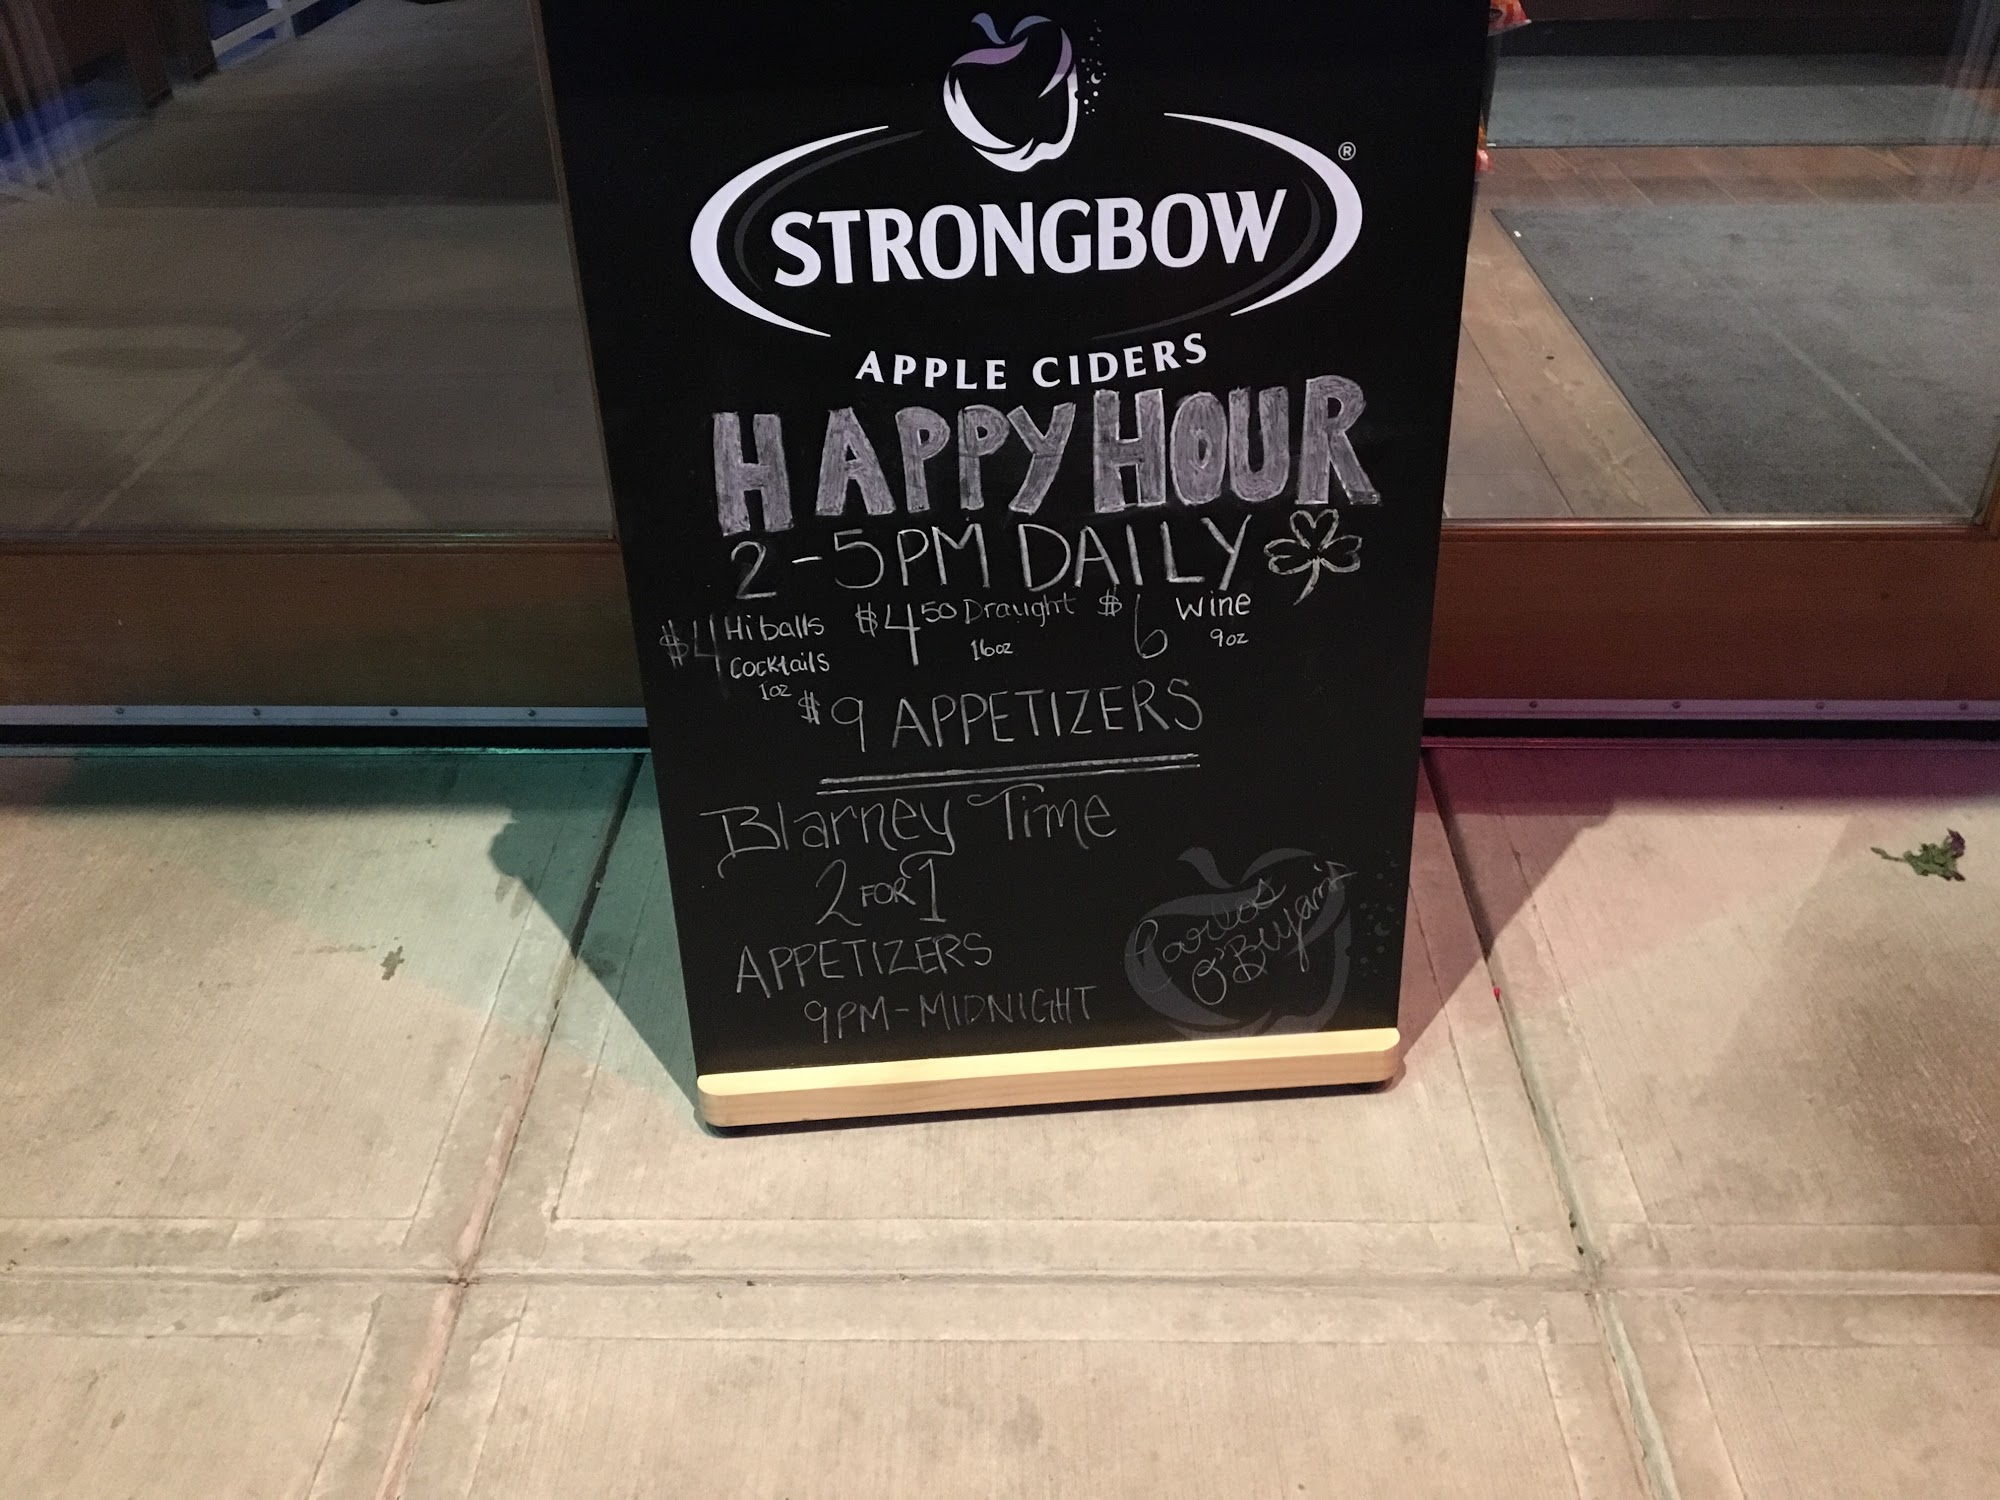 STRONGBOW ®
APPLE CIDERS
HAPPY HOUR
2-5PM DAILY
$4 Hiballs
Cocktails
1oz
$4.50 Draught
16oz
$6 Wine
9oz
$9 APPETIZERS
Blarney Time
2 FOR 1
APPETIZERS
9PM-MIDNIGHT
Carlos
O'Bryan's